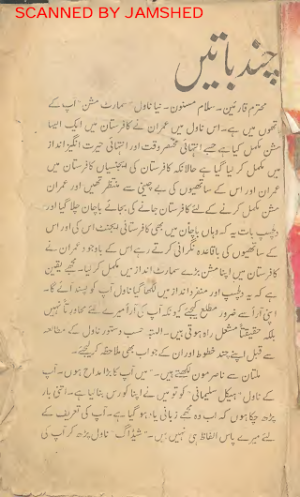 SCANNED BY JAMSHED
چند باتیں
محترم قارئین۔ سلام مسنون۔ نیا ناول "سمارٹ مشن" آپ کے
ہاتھوں میں ہے۔ اس ناول میں عمران نے کافرستان میں ایک ایسا
مشن مکمل کیا ہے جسے انتہائی مختصر وقت اور انتہائی حیرت انگیز انداز
میں مکمل کر لیا گیا ہے حالانکہ کافرستان کی ایجنسیاں کافرستان میں
عمران اور اس کے ساتھیوں کی بے چینی سے منتظر تھیں اور عمران
مشن مکمل کرنے کے لئے کافرستان جانے کی بجائے باچان چلا گیا اور
دلچسپ بات یہ کہ وہاں باچان میں بھی کافرستانی ایجنٹ اس کی اور اس
کے ساتھیوں کی باقاعدہ نگرانی کرتے رہے اس کے باوجود عمران نے
کافرستان میں اپنا مشن بڑے سمارٹ انداز میں مکمل کر لیا۔ مجھے یقین
ہے کہ یہ دلچسپ اور منفرد انداز میں لکھا گیا ناول آپ کو پسند آئے گا۔
اپنی آراء سے ضرور مطلع کیجئے کیونکہ آپ کی آراء میرے لئے محاورتاً نہیں
بلکہ حقیقتاً مشعل راہ ہوتی ہیں۔ البتہ حسب دستور ناول کے مطالعہ
سے قبل اپنے چند خطوط اور ان کے جواب بھی ملاحظہ کر لیجئے۔
ملتان سے ناصر مومن لکھتے ہیں۔ "میں آپ کا بڑا مداح ہوں۔ آپ
کے ناول "ہیکل سلیمانی" کو تو میں نے اپنا کورس بنا لیا ہے۔ اتنی بار
پڑھ چکا ہوں کہ اب وہ مجھے زبانی یاد ہو گیا ہے۔ آپ کی تعریف کے
لئے میرے پاس الفاظ ہی نہیں ہیں۔ "شیڈاگ" ناول پڑھ کر آپ کی